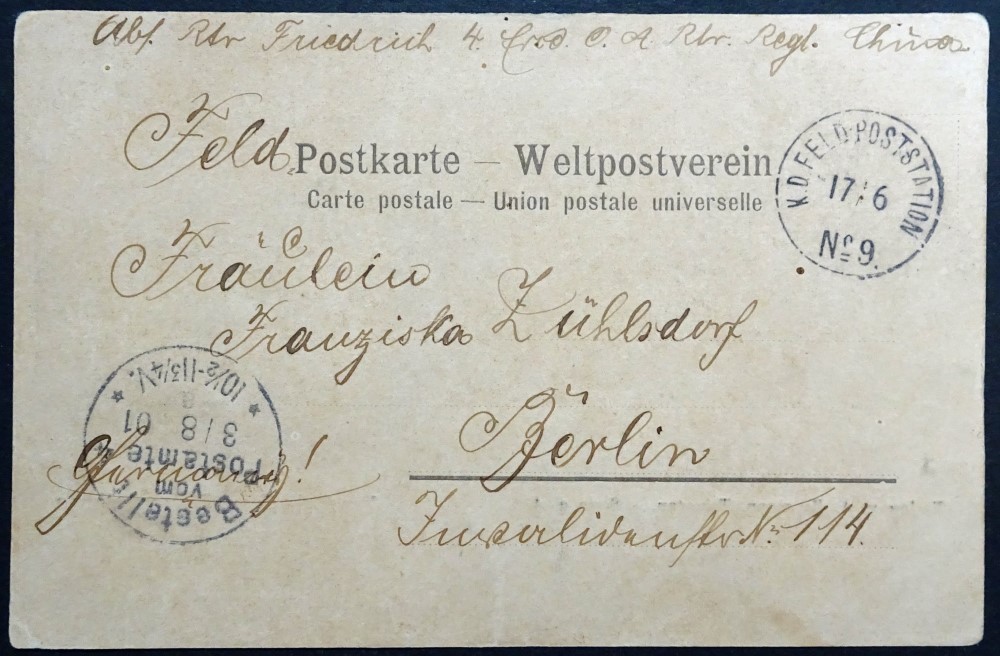 Abs. Rtr Friedrich 4. Esc. O. A Rtr. Regt. China
Feld Postkarte – Weltpostverein
Carte postale — Union postale universelle
K.D. FELD-POSTSTATION
17/6
No 9.
Fräulein
Franziska Zühlsdorf
Berlin
Invalidenstr No 114.
Germany!
Bestellt
vom
Postamte
3/8 01
10½-11¾V.